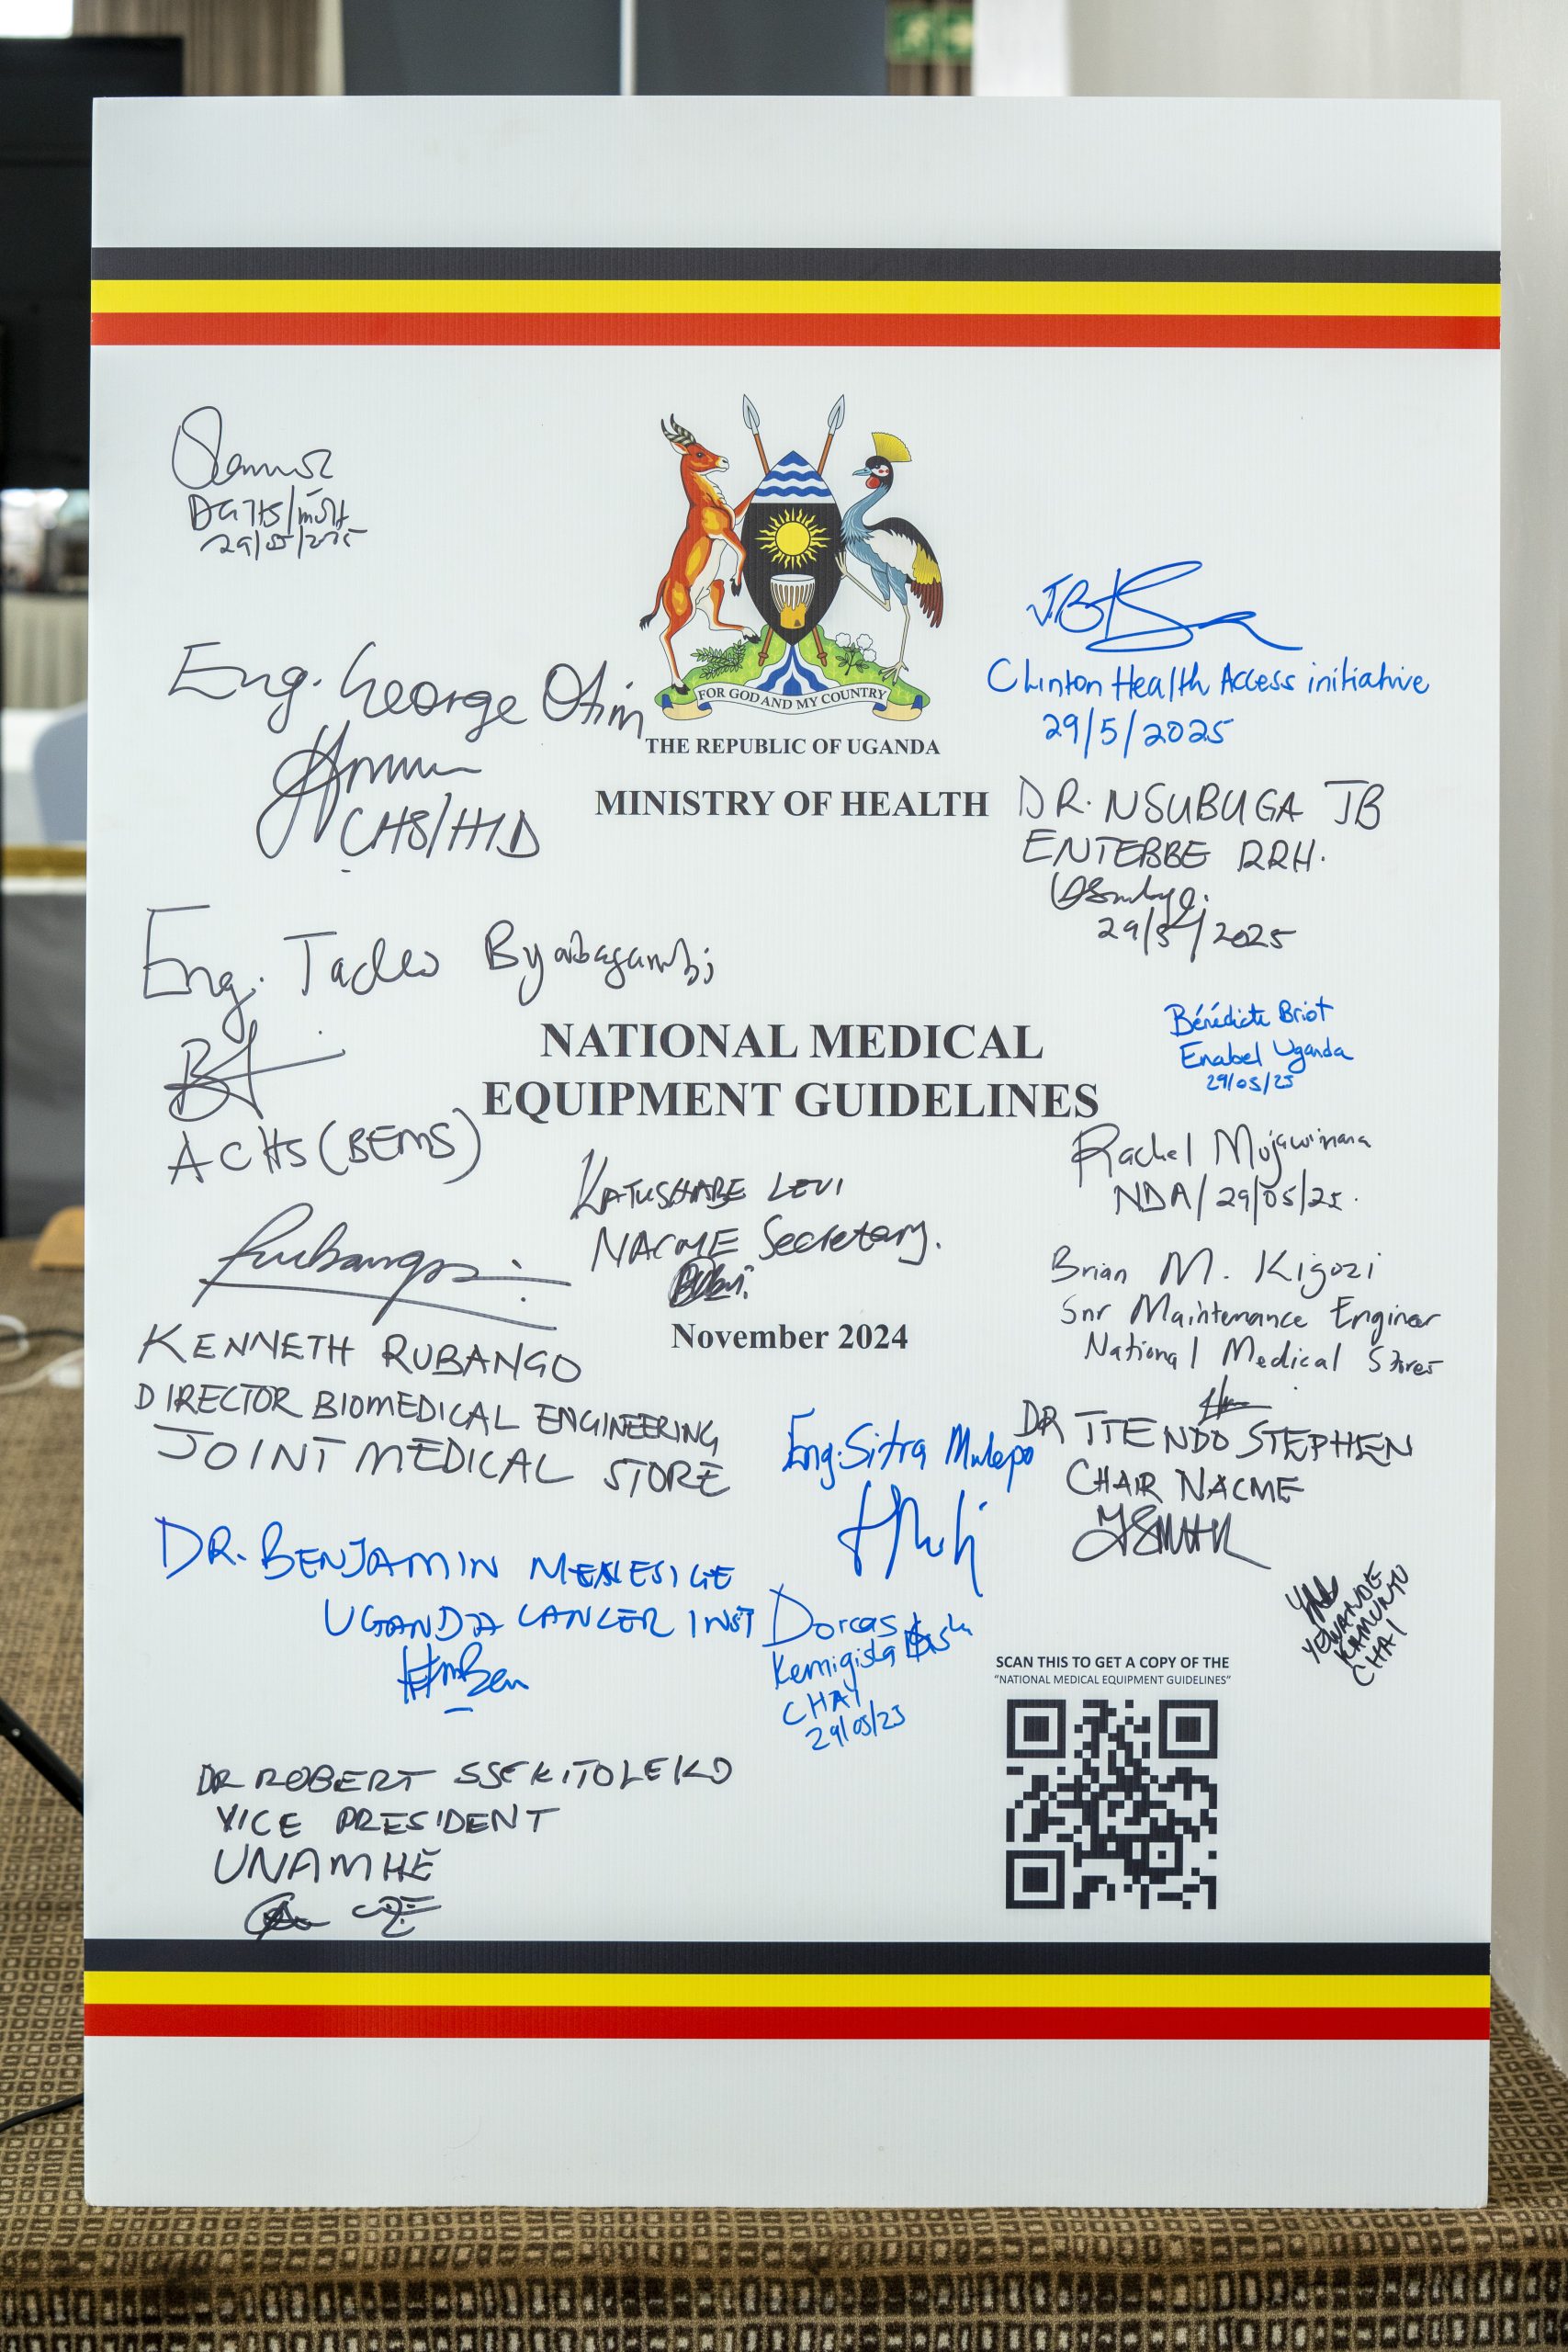 DGHS/MOH
29/05/2025
FOR GOD AND MY COUNTRY
THE REPUBLIC OF UGANDA
MINISTRY OF HEALTH
Eng. George Otim
CHS/HID
JB
Clinton Health Access initiative
29/5/2025
DR. NSUBUGA JB
ENTEBBE RRH.
29/5/2025
Eng. Tadeo Byabagambi
ACHS (BEMS)
NATIONAL MEDICAL
EQUIPMENT GUIDELINES
Bénédicte Briot
Enabel Uganda
29/05/25
Rachel Mujawimana
NDA/29/05/25.
KATUSHABE LEVI
NACME Secretary.
November 2024
Brian M. Kigozi
Snr Maintenance Engineer
National Medical Stores
Rubango
KENNETH RUBANGO
DIRECTOR BIOMEDICAL ENGINEERING
JOINT MEDICAL STORE
Eng. Sitra Mulepo
DR TTENDO STEPHEN
CHAIR NACME
DR. BENJAMIN
UGANDA CANCER INST
Dorcas
Kemigisha
CHAI
29/05/25
YEWANDE
KAMUNTU
CHAI
DR ROBERT SSEKITOLEKO
VICE PRESIDENT
UNAMHE
SCAN THIS TO GET A COPY OF THE
"NATIONAL MEDICAL EQUIPMENT GUIDELINES"